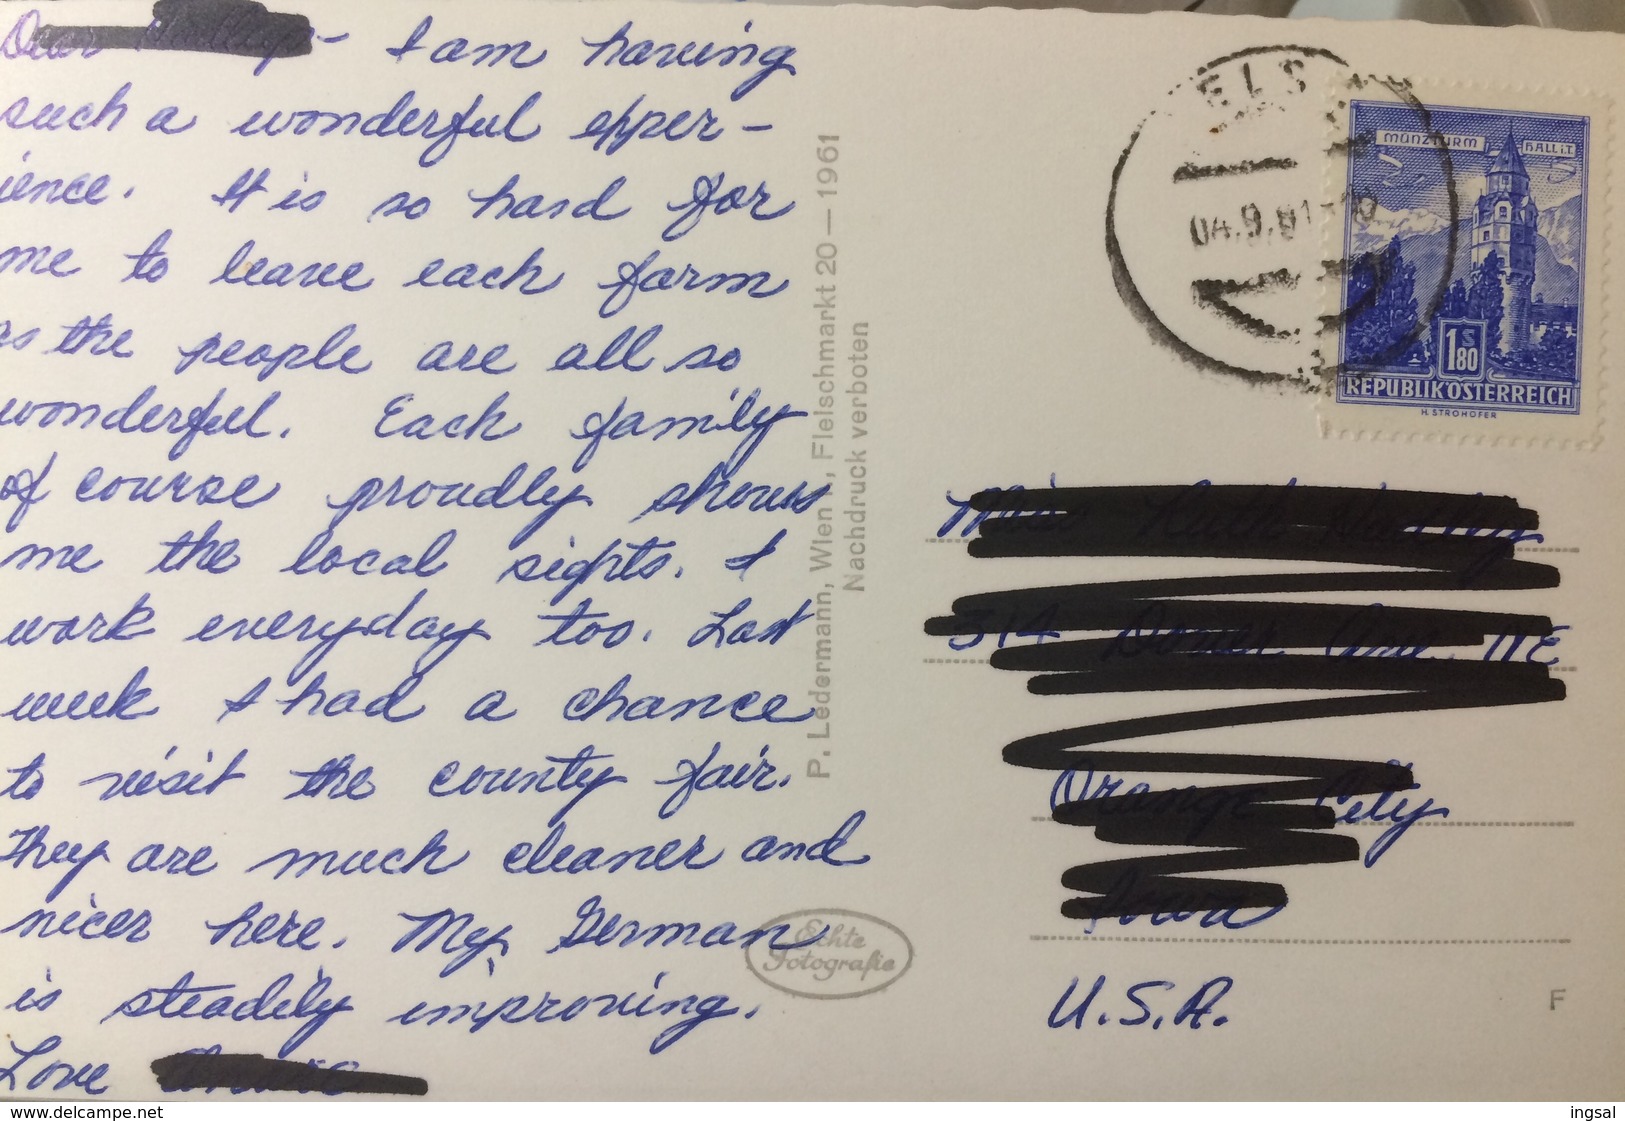 Dear
- I am having
such a wonderful exper-
ience. It is so hard for
me to leave each farm
as the people are all so
wonderful. Each family
of course proudly shows
me the local sights. I
work everyday too. Last
week I had a chance
to visit the county fair.
They are much cleaner and
nicer here. My German
is steadily improving.
Love
P. Ledermann, Wien I., Fleischmarkt 20 — 1961
Nachdruck verboten
Echte
Fotografie
ELS
04.9.61-10
MÜNZTURM HALL i.T.
1 S 80
REPUBLIK ÖSTERREICH
H. STROHOFER
U.S.A.
F
www.delcampe.net
ingsal